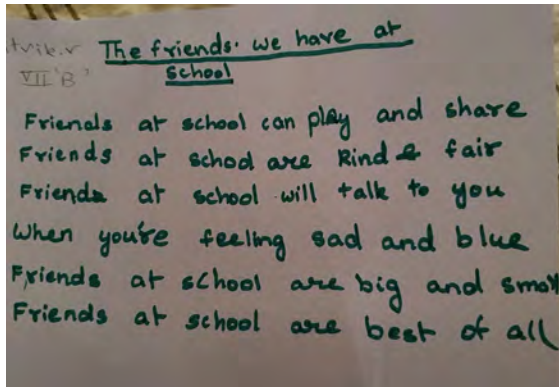 itvik.v
VII 'B'
The friends. we have at
school
Friends at school can play and share
Friends at school are kind & fair
Friends at school will talk to you
When you're feeling sad and blue
Friends at school are big and small
Friends at school are best of all